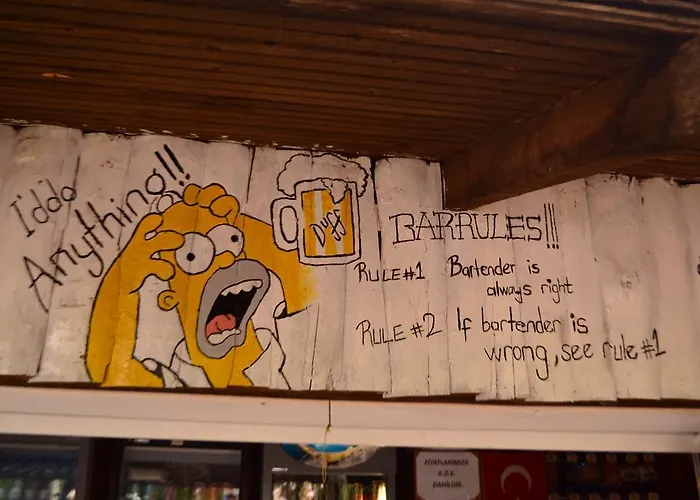 I'ddo
Anything!!
Duff
BARRULES!!!
RULE#1 Bartender is
always right
RULE #2 If bartender is
wrong, see rule #1
FİYATLARIMIZA
K.D.V.
DAHİLDİR.